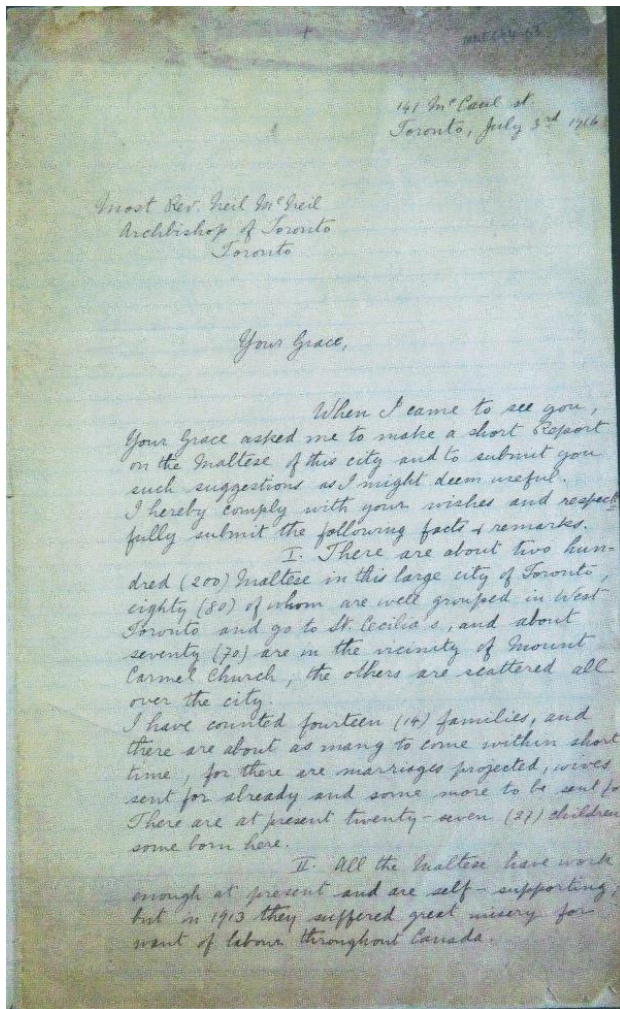 141 McCaul st.
Toronto, July 3rd 1916
Most Rev. Neil McNeil
Archbishop of Toronto
Toronto
Your Grace,
When I came to see you,
Your Grace asked me to make a short Report
on the Maltese of this city and to submit you
such suggestions as I might deem useful.
I hereby comply with your wishes and respect
fully submit the following facts & remarks.
I. There are about two hun-
dred (200) Maltese in this large city of Toronto,
eighty (80) of whom are well grouped in West
Toronto and go to St. Cecilia's, and about
seventy (70) are in the vicinity of Mount
Carmel Church, the others are scattered all
over the city.
I have counted fourteen (14) families, and
there are about as many to come within short
time, for there are marriages projected, wives
sent for already and some more to be sent fo
There are at present twenty-seven (27) children
some born here.
II. All the Maltese have work
enough at present and are self-supporting;
but in 1913 they suffered great misery for
want of labour throughout Canada.